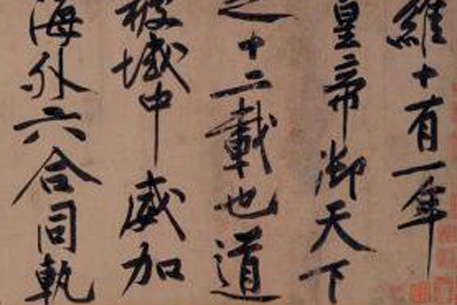 維十有一年
皇帝御天下
之十二載也道
被域中威加
海外六合同軌